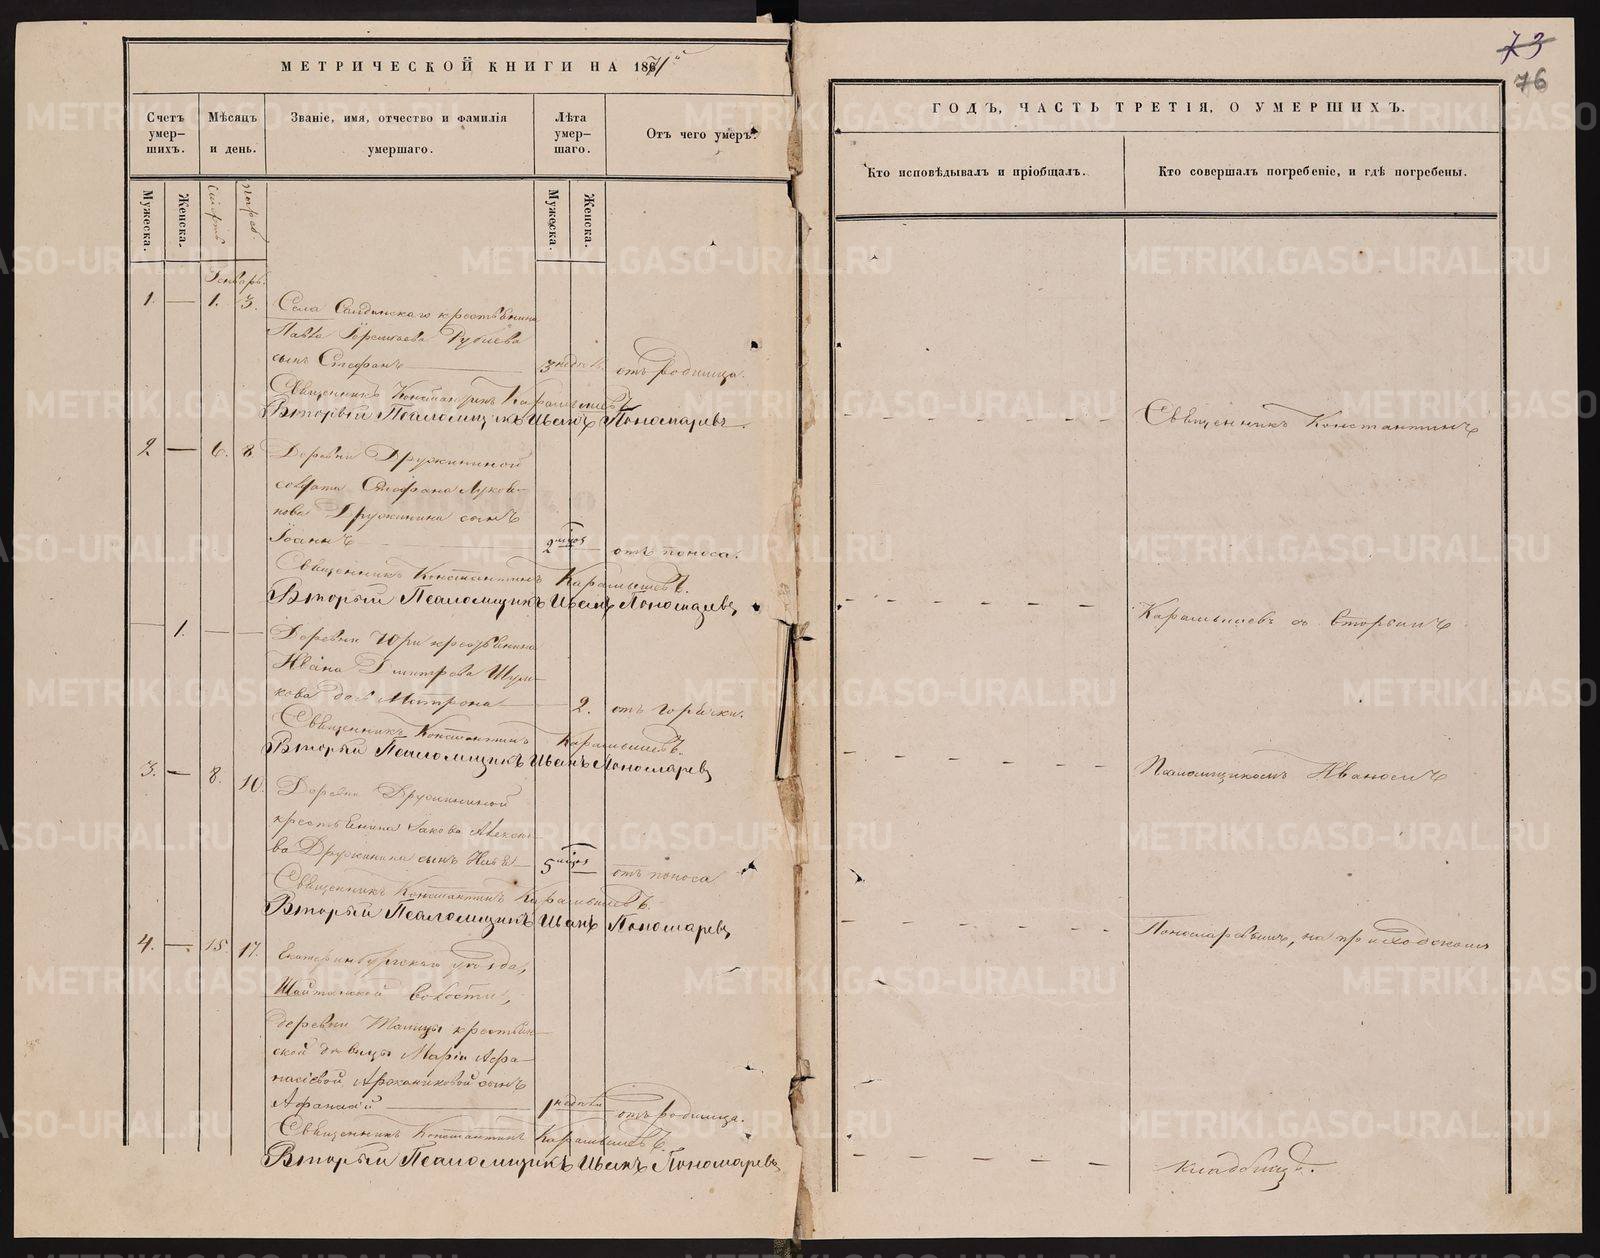 МЕТРИЧЕСКОЙ КНИГИ НА 1871й
Счетъ умер-
шихъ.
Мѣсяцъ
и день.
Званіе, имя, отчество и фамилія
умершаго.
Лѣта
умер-
шаго.
Отъ чего умеръ.
Мужеска.
Женска.
смерть
погреб.
Мужеска.
Женска.
Генварь.
1. — 1. 3. Села крестьянина
Павла
сынъ Стефанъ 3 недѣль. отъ родимца.
Священникъ Константинъ Карамышевъ
Вторый Псаломщикъ Иванъ Пономаревъ
2 — 6. 8 Деревни Дружининой
солдата Стефана Луков-
нова Дружинина сынъ
Іоаннъ 2 мѣсяц. отъ поноса.
Священникъ Константинъ Карамышевъ.
Вторый Псаломщикъ Иванъ Пономаревъ
— 1. — — Деревни крестьянина
Ивана Димитрова
кова дочь Матрона 2. отъ горячки.
Священникъ Константинъ Карамышевъ.
Вторый Псаломщикъ Иванъ Пономаревъ
3. — 8. 10. Деревни Дружининой
крестьянина Іакова Алексѣе-
ва Дружинина сынъ 5 мѣсяц. отъ поноса
Священникъ Константинъ Карамышевъ.
Вторый Псаломщикъ Иванъ Пономаревъ
4. — 15 17. Екатеринбургскаго уѣзда,
Шайтанской волости,
деревни Талицы крестьян-
ской дѣвицы Маріи Афа-
насіевой сынъ
Афанасій 1 недѣли отъ родимца.
Священникъ Константинъ Карамышевъ.
Вторый Псаломщикъ Иванъ Пономаревъ
73
76
ГОДЪ, ЧАСТЬ ТРЕТІЯ, О УМЕРШИХЪ.
Кто исповѣдывалъ и пріобщалъ.
Кто совершалъ погребеніе, и гдѣ погребены.
Священникъ Константинъ
Карамышевъ со вторымъ
Псаломщикомъ Иваномъ
Пономаревымъ, на приходскомъ
кладбищѣ.
METRIKI.GASO-URAL.RU